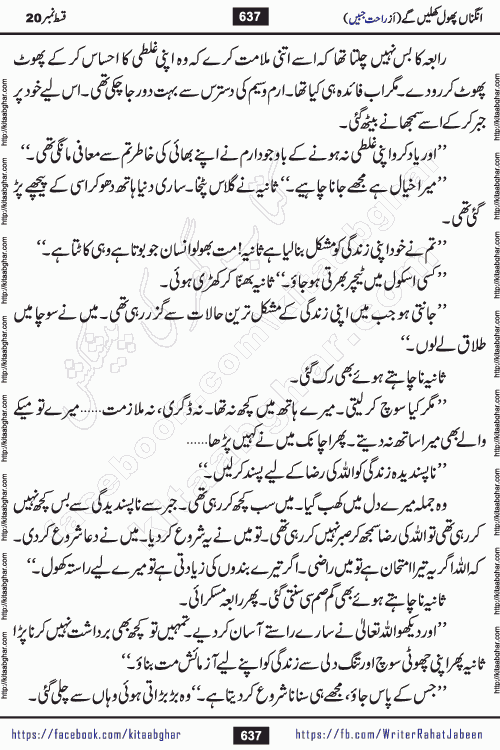 انگناں پھول کھلیں گے (از راحت جبیں)
637
قسط نمبر 20
رابعہ کا بس نہیں چلتا تھا کہ اسے اتنی ملامت کرے کہ وہ اپنی غلطی کا احساس کر کے پھوٹ
پھوٹ کر رو دے۔ مگر اب فائدہ ہی کیا تھا۔ ارم وسیم کی دسترس سے بہت دور جا چکی تھی۔ اس لیے خود پر
جبر کر کے اسے سمجھانے بیٹھ گئی۔
’’اور یاد کرو اپنی غلطی نہ ہونے کے باوجود ارم نے اپنے بھائی کی خاطر تم سے معافی مانگی تھی۔‘‘
’’میرا خیال ہے مجھے جانا چاہیے۔‘‘ ثانیہ نے گلاس پٹخا۔ ساری دنیا ہاتھ دھو کر اسی کے پیچھے پڑ
گئی تھی۔
’’تم نے خود اپنی زندگی کو مشکل بنا لیا ہے ثانیہ! مت بھولو انسان جو بوتا ہے وہی کاٹتا ہے۔‘‘
’’کسی اسکول میں ٹیچر بھرتی ہو جاؤ۔‘‘ ثانیہ بھنّا کر کھڑی ہوئی۔
’’جانتی ہو جب میں اپنی زندگی کے مشکل ترین حالات سے گزر رہی تھی۔ میں نے سوچا میں
طلاق لے لوں۔‘‘
ثانیہ نا چاہتے ہوئے بھی رک گئی۔
’’مگر کیا سوچ کر لیتی۔ میرے ہاتھ میں کچھ نہ تھا۔ نہ ڈگری، نہ ملازمت...... میرے تو میکے
والے بھی میرا ساتھ نہ دیتے۔ پھر اچانک میں نے کہیں پڑھا......
’’ناپسندیدہ زندگی کو اللہ کی رضا کے لیے پسند کر لیں۔‘‘
وہ جملہ میرے دل میں کھب گیا۔ میں سب کچھ کر رہی تھی۔ جبر سے ناپسندیدگی سے بس کچھ نہیں
کر رہی تھی تو اللہ کی رضا سمجھ کر صبر نہیں کر رہی تھی۔ تو میں نے یہ شروع کر دیا۔ میں نے دعا شروع کر دی۔
کہ اللہ اگر یہ تیرا امتحان ہے تو میں راضی۔ اگر تیرے بندوں کی زیادتی ہے تو میرے لیے راستہ کھول۔‘‘
ثانیہ نا چاہتے ہوئے بھی گم صم سی سنتی گئی۔ پھر رابعہ مسکرائی۔
’’اور دیکھو اللہ تعالیٰ نے سارے راستے آسان کر دیے۔ تمہیں تو کچھ بھی برداشت نہیں کرنا پڑا
ثانیہ پھر اپنی چھوٹی سوچ اور تنگ دلی سے زندگی کو اپنے لیے آزمائش مت بناؤ۔‘‘
’’جس کے پاس جاؤ، مجھے ہی سنانا شروع کر دیتا ہے۔‘‘ وہ بڑبڑاتی ہوئی وہاں سے چلی گئی۔
https://facebook.com/kitaabghar
637
https://fb.com/WriterRahatJabeen